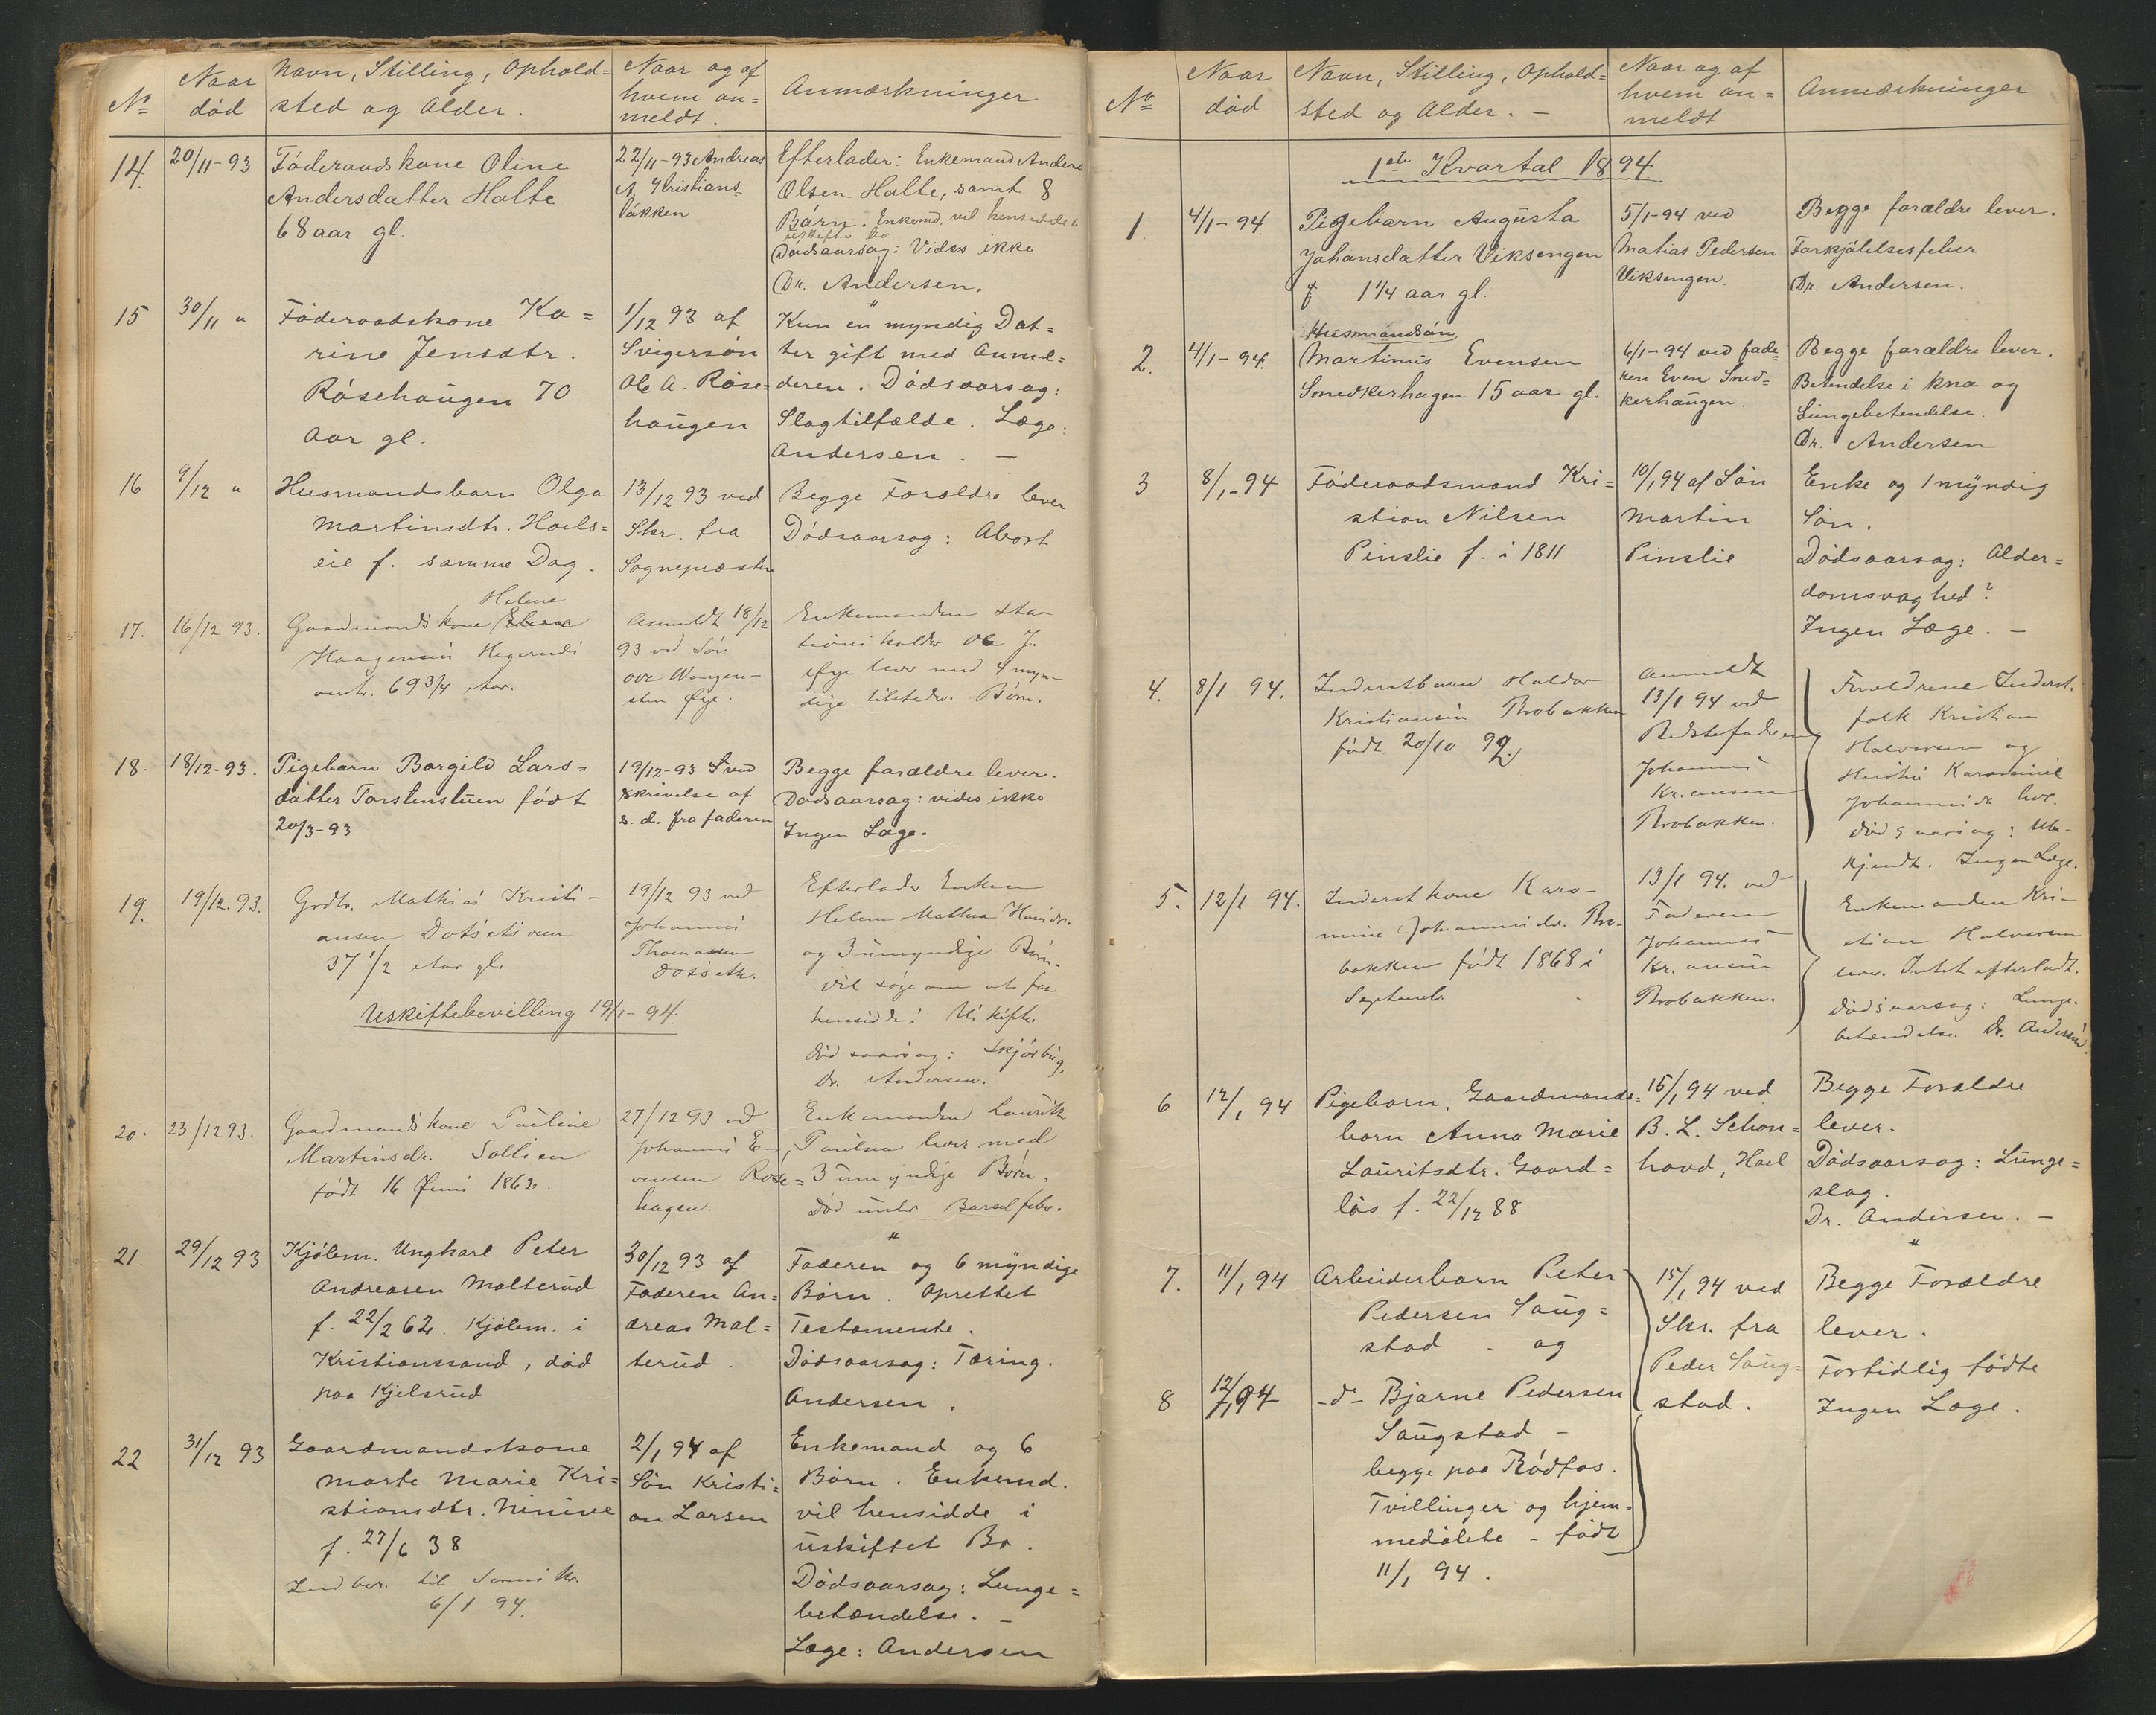 No
Naar død
Navn, Stilling, Ophold=
sted og Alder.
Naar og af
hvem an=
meldt.
Anmærkninger
14.
20/11-93
Føderaadskone Oline
Andersdatter Holte
68 aar gl.
22/11-93 Andreas
N. Kristians
løkken
Efterlader: Enkemand Anders
Olsen Holte, samt 8
Børn. Enkemd. vil hensidde i
uskifte bo.
Dødsaarsag: Vides ikke
Dr. Andersen.
15
30/11 "
Føderaadskone Ka=
rine Jensdtr.
Røsehaugen 70
Aar gl.
1/12 93 af
Svigersøn
Ole A. Røse=
haugen
"
Kun en myndig Dat=
ter gift med Anmel=
deren. Dødsaarsag:
Slagtilfælde. Læge:
Andersen. -
16
9/12 "
Husmandsbarn Olga
Martinsdtr. Hoels=
eie f. samme Dag.
13/12 93 ved
Skr. fra
Sognepræsten
Begge Forældre lever
Dødsaarsag: Abort
17.
16/12 93.
Helene
Gaardmandskone
Haagensen
omtr. 69 3/4 Aar.
Anmeldt 18/12
93 ved Søn
Ove Wangen-
sten Øye.
Enkemanden sta-
tionsholder Ole J.
Øye lever med 4 myn-
dige tilstedev. Børn.
18.
18/12-93.
Pigebarn Borgild Lars=
datter Torstenstuen født
20/3-93
19/12-93 ved
skrivelse af
s. d. fra faderen
Begge forældre lever.
Dødsaarsag: vides ikke
Ingen Læge.
19.
19/12. 93.
Grdbr. Mathias Kristi-
ansen Dotsetsveen
37 1/2 Aar gl.
Uskiftebevilling 19/1-94.
19/12 93 ved
Johannes
Thomassen
Dotseth.
Efterlader Enken
Helene Mathea Hansdr.
og 3 umyndige Børn.
Vil søge om at faa
hensidde i Uskifte.
Dødsaarsag: Skjørbug,
Dr. Andersen.
20.
23/12 93.
Gaardmandskone Pauline
Martinsdr. Sollien
født 16 Juni 1862.
27/12 93 ved
Johannes E-
vensen Rose=
hagen.
Enkemanden Lauritz
Paulsen lever med
3 umyndige Børn.
Død under Barselfeber.
21.
29/12 93
Kjølem. Ungkarl Peter
Andreasen Malterud
f. 22/2 62. Kjølem. i
Kristianssand, død
paa Kjelsrud
30/12 93 af
Faderen An=
dreas Mal=
terud.
"
Faderen og 6 myndige
Børn. Oprettet
Testamente.
Dødsaarsag: Tæring.
Andersen.
22
31/12 93
Gaardmandskone
Marte Marie Kri=
stiansdtr. Ninive
f. 27/6 38
Indber. til
6/1 94.
2/1 94 af
Søn Kristi=
an Larsen
Enkemand og 6
Børn. Enkemd.
vil hensidde i
uskiftet Bo.
Dødsaarsag: Lunge=
betændelse. -
Læge: Andersen
No
Naar død
Navn, Stilling, Ophold=
sted og Alder. -
Naar og af
hvem an=
meldt
Anmærkninger
1ste Kvartal 1894
1.
4/1-94.
Pigebarn Augusta
Johansdatter Viksengen
f 1 1/4 aar gl.
5/1-94 ved
Matias Pedersen
Viksengen.
Begge forældre lever.
Forkjølelsesfeber
Dr. Andersen.
2.
4/1-94.
Husmandsøn
Martinus Evensen
Snedkerhagen 15 aar gl.
6/1-94 ved fade=
ren Even Sned=
kerhaugen.
Begge forældre lever.
Betendelse i knæ og
Lungebetendelse.
Dr. Andersen
3
8/1-94
Føderaadsmand Kri=
stian Nilsen
Pinslie f. i 1811
10/1 94 af Søn
Martin
Pinslie
Enke og 1 myndig
Søn.
Dødsaarsag: Alder=
domsvaghed?
Ingen Læge. -
4.
8/1 94.
Inderstbarn Haldor
Kristiansen Brobakken
født 20/10 92.
Anmeldt
13/1 94 ved
Bedstefaderen
Johannes
Kr.ansen
Brobakken.
Forældrene Inderst.
folk Kristian
Halvorsen og
Hustru Karomine
Johannesdr. lever.
Dødsaarsag: Ube-
kjendt. Ingen Læge.
5.
12/1 94.
Inderstkone Karo-
mine Johannesdr. Bro-
bakken født 1868 i
Septemb.
13/1 94. ved
Faderen
Johannes
Kr.ansen
Brobakken.
Enkemanden Kri-
stian Halvorsen
lever. Intet efterladt.
Dødsaarsag: Lunge-
betendelse. Dr. Andersen.
6
12/1 94
Pigebarn, Gaardmands=
barn Anna Marie
Lauritsdtr. Gaard=
løs f. 22/12 88
15/1 94 ved
B. L. Schon=
hovd, Hoel
Begge Forældre
lever.
Dødsaarsag: Lunge=
slag.
Dr. Andersen. -
7.
11/1 94
Arbeiderbarn Peter
Pedersen Saug=
stad - og
15/1 94 ved
Skr. fra
Peder Saug=
stad.
"
Begge Forældre
lever.
Fortidlig fødte
Ingen Læge.
8
12/1 94
-d- Bjarne Pedersen
Saugstad -
begge paa Rødfos.
Tvillinger og hjem=
medøbte - født
11/1 94.